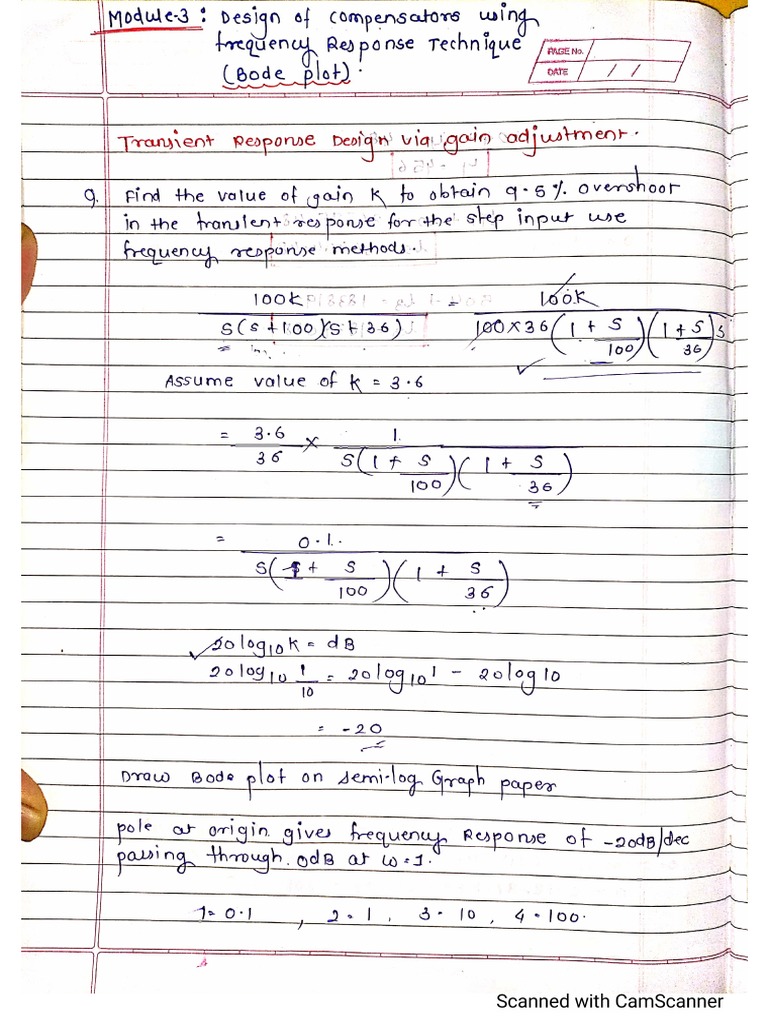 Module-3 : Design of compensators using
frequency Response Technique
(Bode plot).
PAGE No.
DATE / /
Transient Response Design via gain adjustment.
Q. Find the value of gain K to obtain 9.5% overshoot
in the transient response for the step input use
frequency response methods.
100K / S(S+100)(S+36) = 100K / 100×36(1+S/100)(1+S/36)S
Assume value of K = 3.6
= 3.6/36 × 1/S(1+S/100)(1+S/36)
= 0.1 / S(1+S/100)(1+S/36)
20log10K = dB
20log10 1/10 = 20log10 1 - 20log10
= -20
Draw Bode plot on semi-log Graph paper
pole at origin gives frequency Response of -20dB/dec
passing through 0dB at ω=1.
1=0.1 , 2=1, 3=10, 4=100.
Scanned with CamScanner